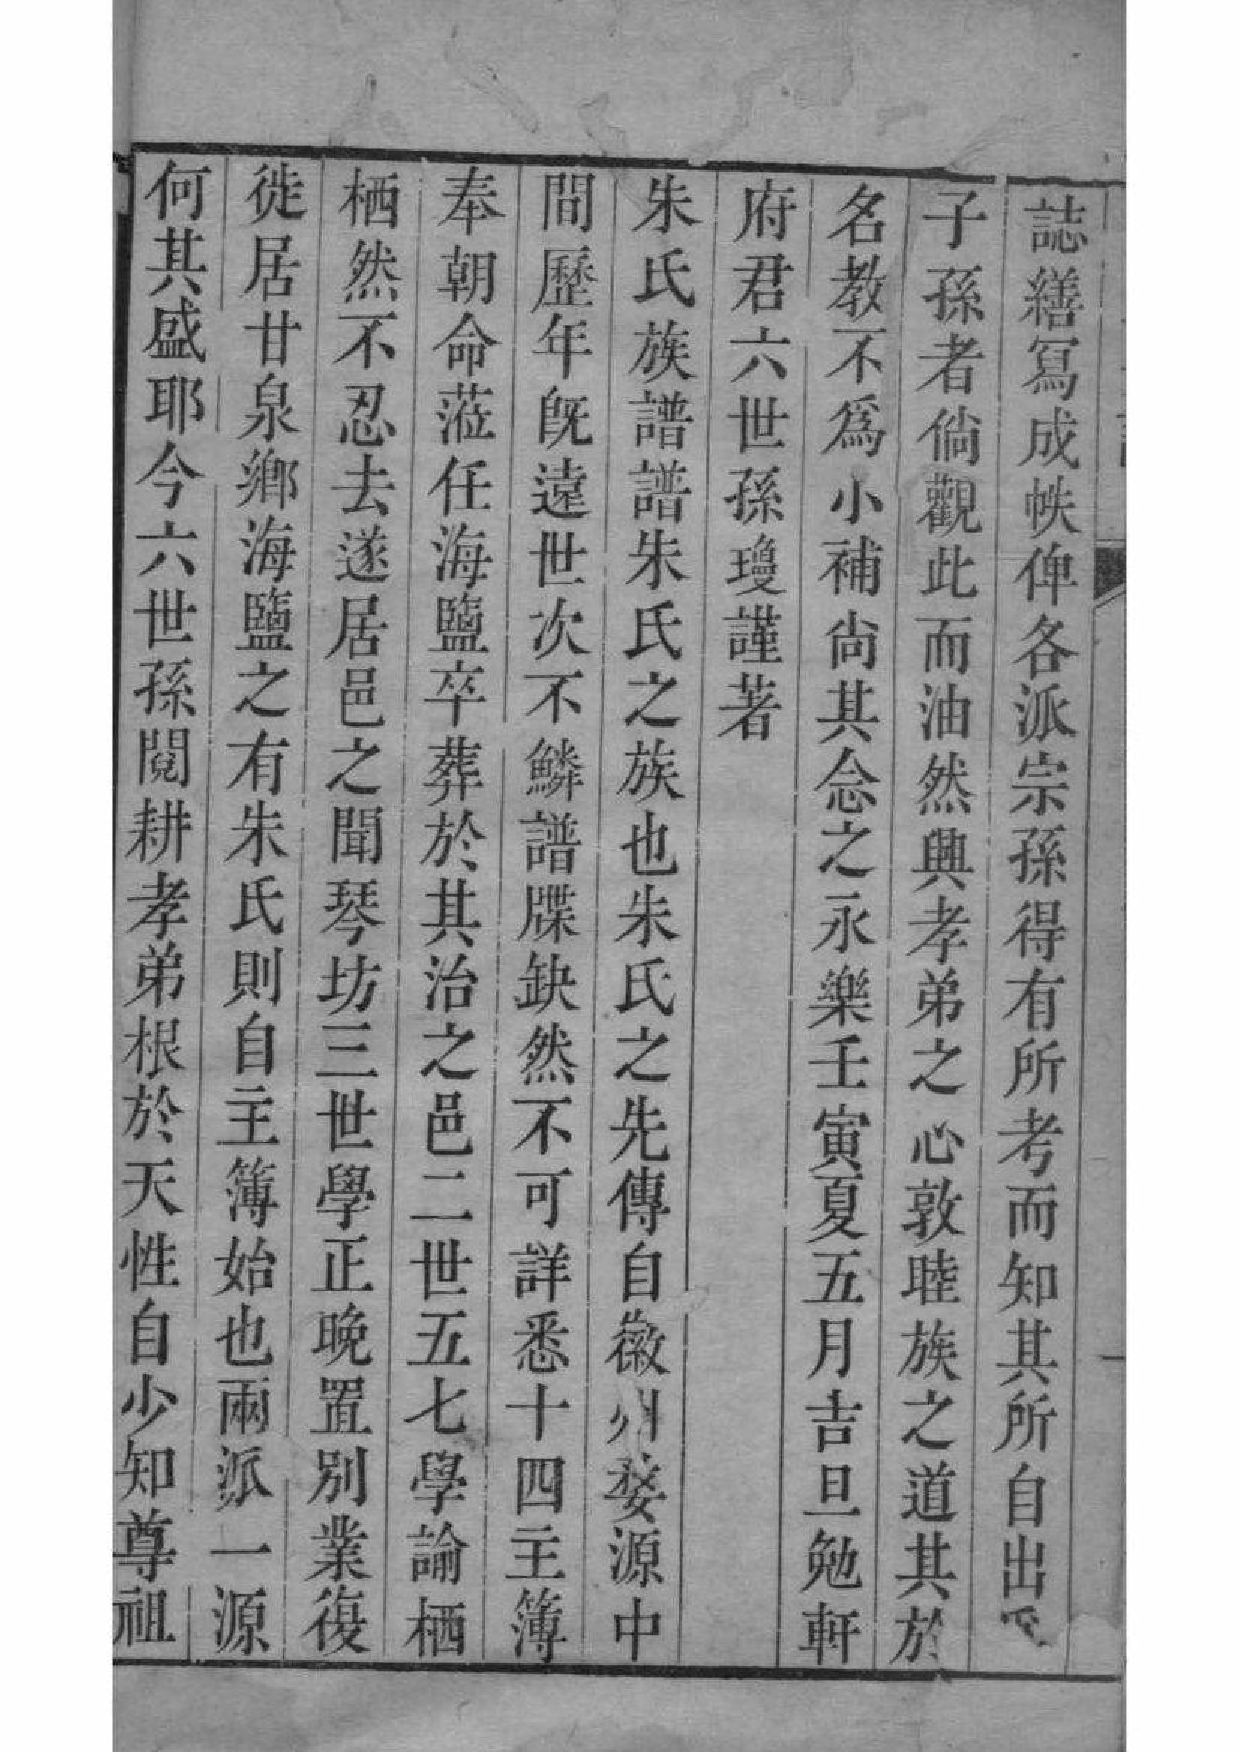 誌繕寫成帙俾各派宗孫得有所考而知其所自出爲
子孫者倘觀此而油然興孝弟之心敦睦族之道其於
名教不爲小補尚其念之永樂壬寅夏五月吉旦勉軒
府君六世孫瓊謹著
朱氏族譜譜朱氏之族也朱氏之先傳自徽州婺源中
間歷年旣遠世次不鱗譜牒缺然不可詳悉十四主簿
奉朝命蒞任海鹽卒葬於其治之邑二世五七學諭栖
栖然不忍去遂居邑之聞琴坊三世學正晚置別業復
徙居甘泉鄉海鹽之有朱氏則自主簿始也兩派一源
何其盛耶今六世孫閱耕孝弟根於天性自少知尊祖